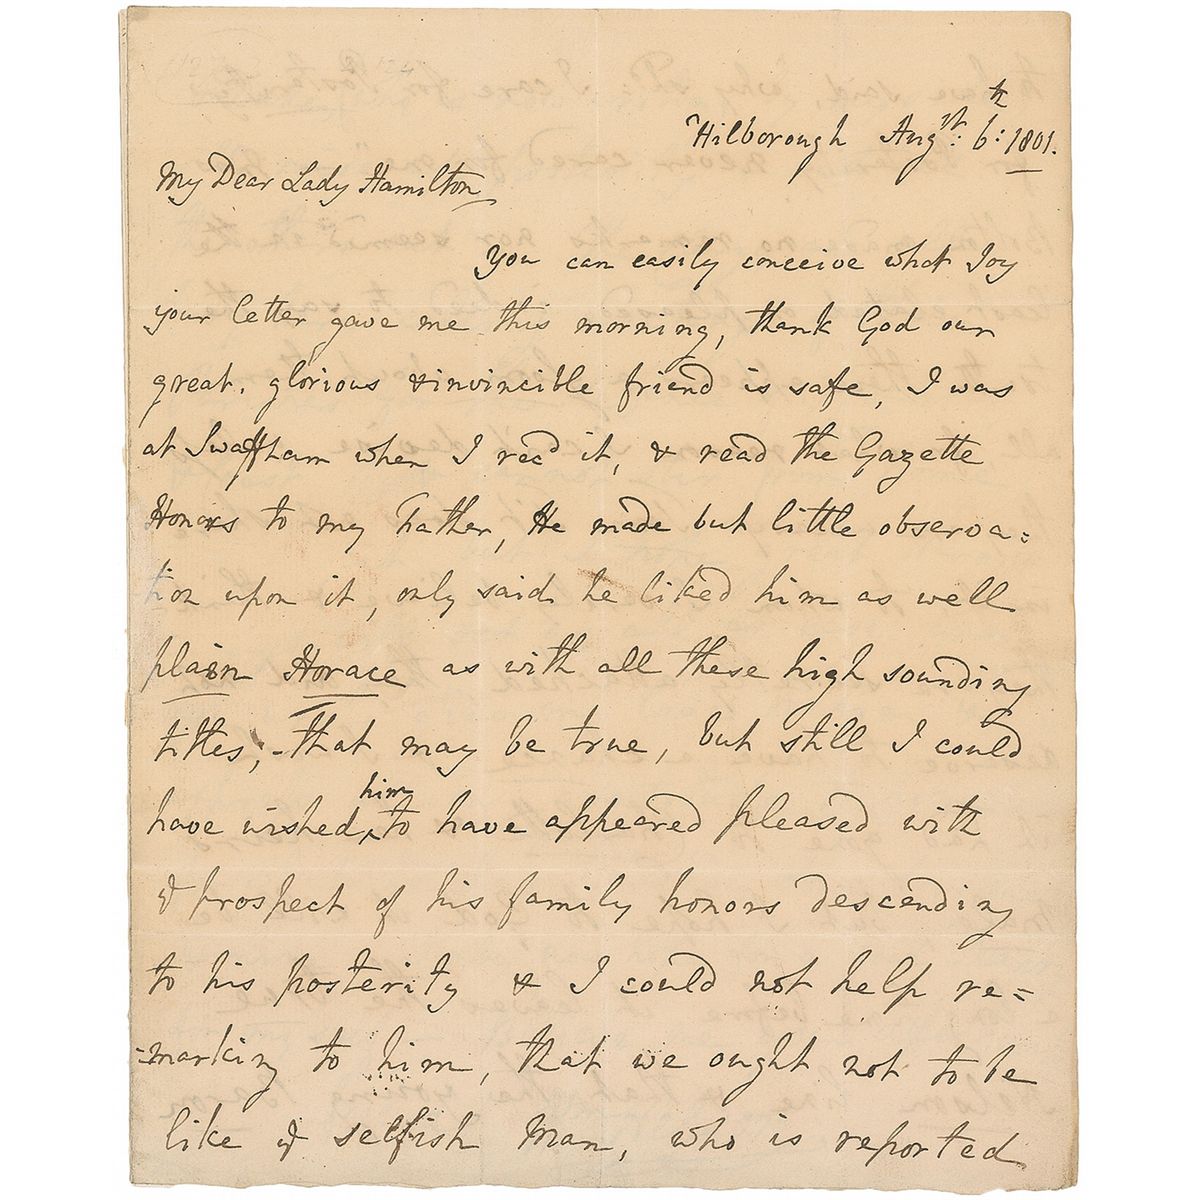 Hilborough Augst: 6th: 1801.
My Dear Lady Hamilton
You can easily conceive what Joy
your letter gave me this morning, thank God our
great, glorious & invincible friend is safe, I was
at Swaffham when I recd it, & read the Gazette
Honors to my Father, He made but little observa:
tion upon it, only said he liked him as well
plain Horace as with all these high sounding
titles, - that may be true, but still I could
have wished him to have appeared pleased with
ye prospect of his family honors descending
to his posterity & I could not help re=
=marking to him, that we ought not to be
like ye selfish Man, who is reported